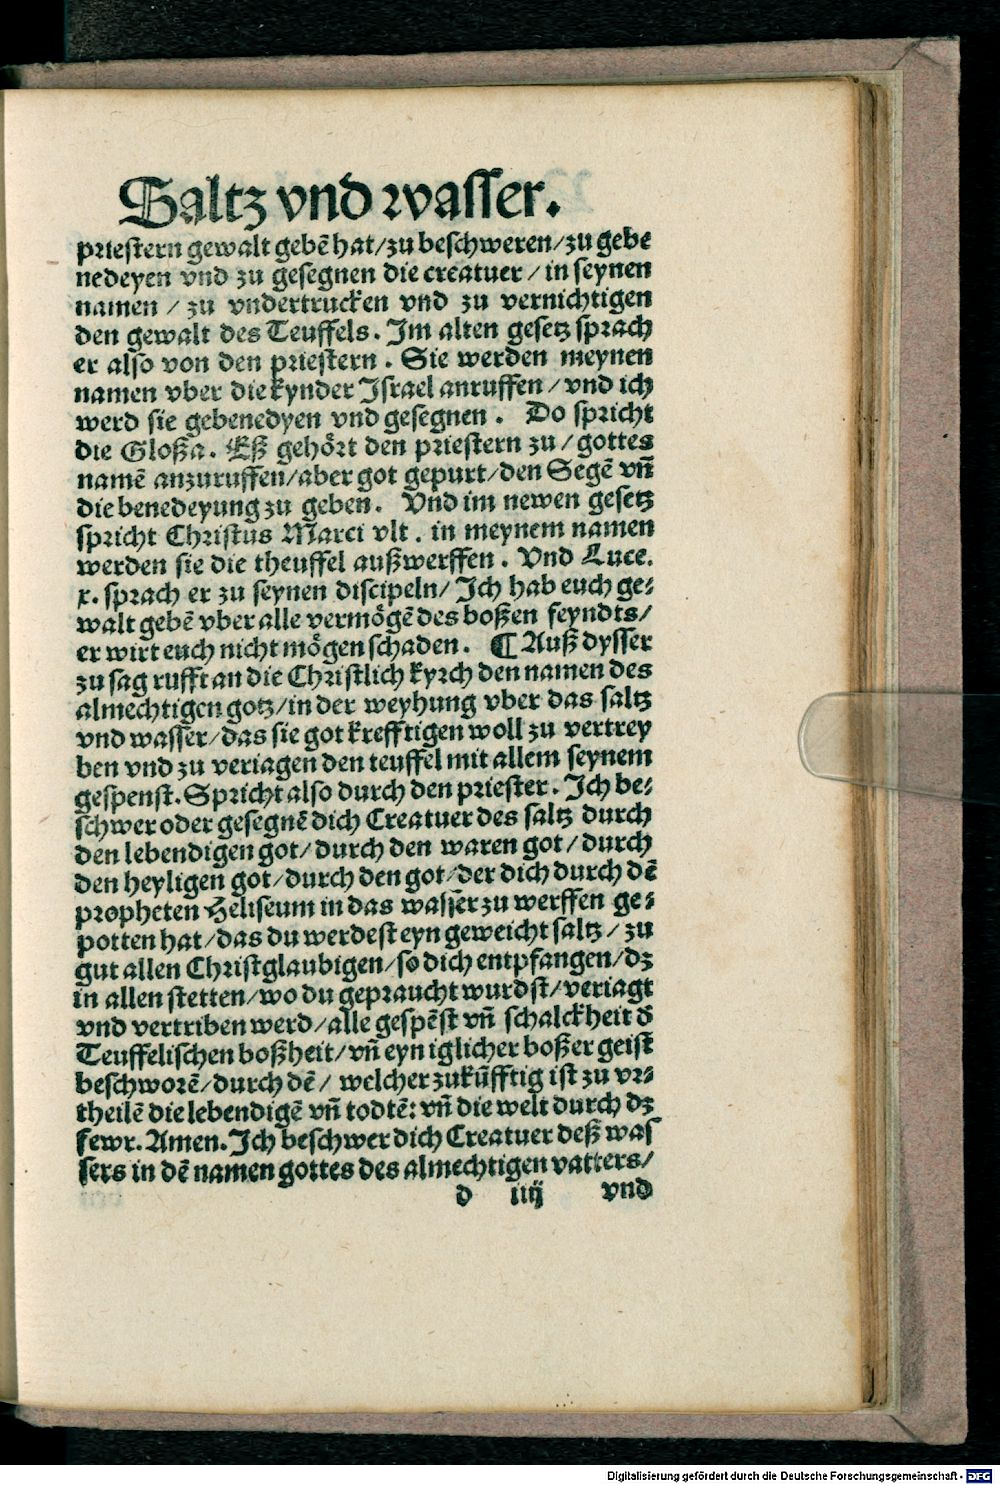 Saltz vnd wasser.
priestern gewalt gebē hat/zu beschweren/zu gebe
nedeyen vnd zu gesegnen die creatuer/in seynen
namen/zu vndertrucken vnd zu vernichtigen
den gewalt des Teuffels. Im alten gesetz sprach
er also von den priestern. Sie werden meynen
namen vber die kynder Israel anruffen/vnd ich
werd sie gebenedyen vnd gesegnen. Do spricht
die Gloßa. Eß gehört den priestern zu/gottes
namē anzuruffen/aber got gepurt/den Segē vñ
die benedeyung zu geben. Vnd im newen gesetz
spricht Christus Marci vlt. in meynem namen
werden sie die theuffel außwerffen. Vnd Luce.
x. sprach er zu seynen discipeln/Ich hab euch ge⸗
walt gebē vber alle vermögē des boßen feyndts/
er wirt euch nicht mögen schaden. ¶ Auß dysser
zu sag rufft an die Christlich kyrch den namen des
almechtigen gotz/in der weyhung vber das saltz
vnd wasser/das sie got krefftigen woll zu vertrey
ben vnd zu veriagen den teuffel mit allem seynem
gespenst. Spricht also durch den priester. Ich be⸗
schwer oder gesegnē dich Creatuer des saltz durch
den lebendigen got/durch den waren got/durch
den heyligen got/durch den got/der dich durch dē
propheten Heliseum in das wasser zu werffen ge⸗
potten hat/das du werdest eyn geweicht saltz/zu
gut allen Christglaubigen/so dich entpfangen/dz
in allen stetten/wo du gepraucht wurdst/veriagt
vnd vertriben werd/alle gespēst vñ schalckheit d̄
Teuffelischen boßheit/vñ eyn iglicher boßer geist
beschworē/durch dē/welcher zukūfftig ist zu vr⸗
theilē die lebendigē vñ todtē: vñ die welt durch dz
fewr. Amen. Ich beschwer dich Creatuer deß was
sers in dē namen gottes des almechtigen vatters/
d iiij vnd
Digitalisierung gefördert durch die Deutsche Forschungsgemeinschaft - DFG